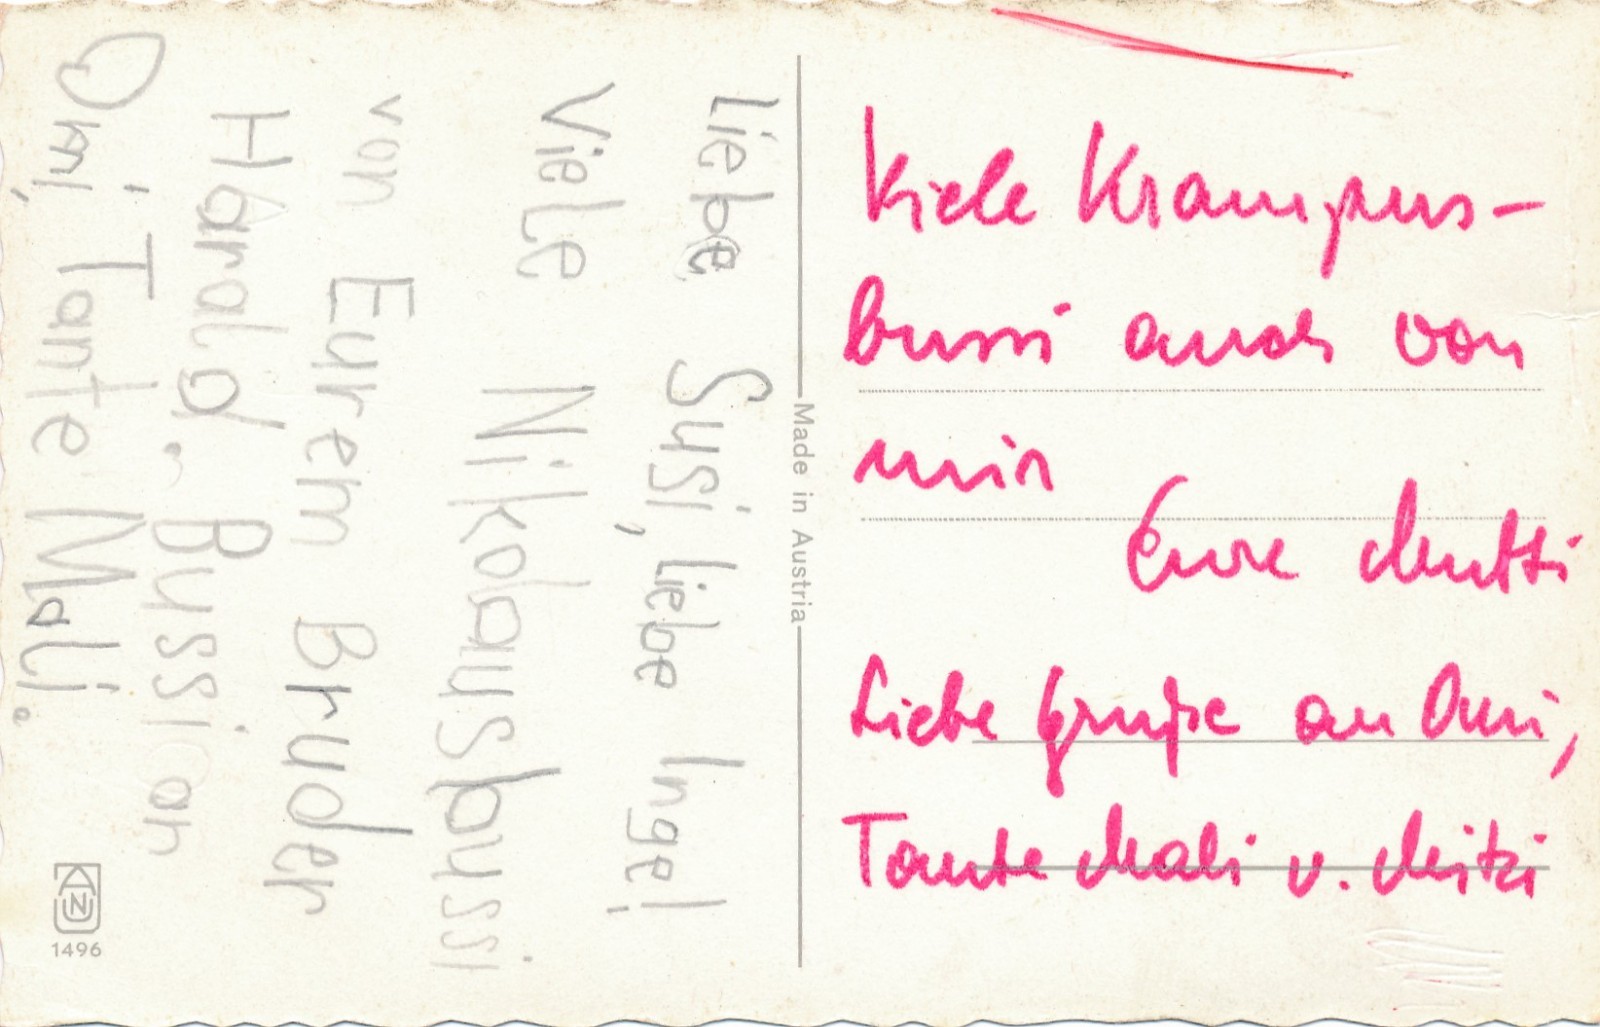 Liebe Susi, Liebe Inge!
Viele Nikolausbussi
von Eurem Bruder
Harald. Bussi an
Omi, Tante Mali.
Made in Austria
1496
Viele Krampus-
bussi auch von
mir
Eure Mutti
Liebe Grüße an Omi,
Tante Mali v. Mitzi